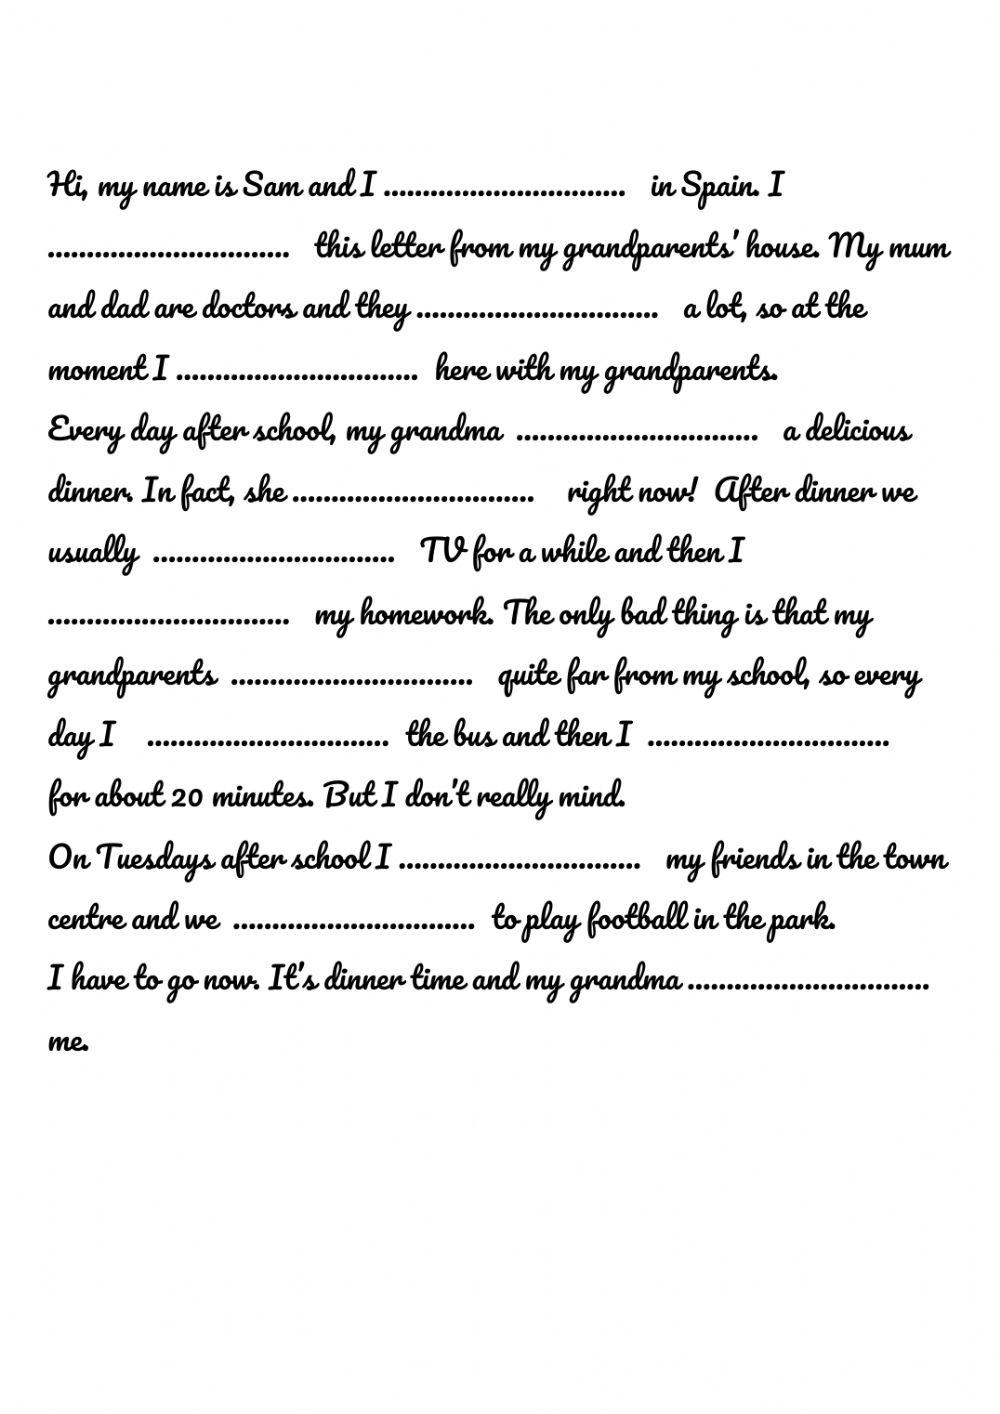 Hi, my name is Sam and I ............................... in Spain. I
............................... this letter from my grandparents' house. My mum
and dad are doctors and they ............................... a lot, so at the
moment I ............................... here with my grandparents.
Every day after school, my grandma ............................... a delicious
dinner. In fact, she ............................... right now! After dinner we
usually ............................... TV for a while and then I
............................... my homework. The only bad thing is that my
grandparents ............................... quite far from my school, so every
day I ............................... the bus and then I ...............................
for about 20 minutes. But I don't really mind.
On Tuesdays after school I ............................... my friends in the town
centre and we ............................... to play football in the park.
I have to go now. It's dinner time and my grandma ...............................
me.